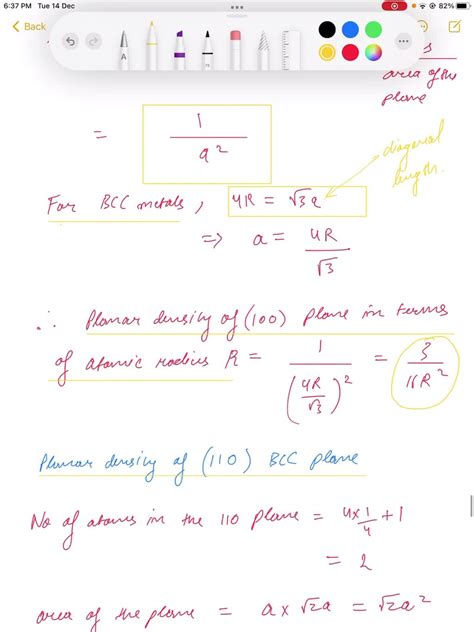 6:37 PM Tue 14 Dec 82%
Back
area of the
plane
= 1 / a²
diagonal
length.
For BCC metals, 4R = √3a
=> a = 4R / √3
∴ Planar density of (100) plane in terms
of atomic radius R = 1 / (4R / √3)² = 3 / 16R²
Planar density of (110) BCC plane
No of atoms in the 110 plane = 4 x 1/4 + 1
= 2
area of the plane = a x √2a = √2a²